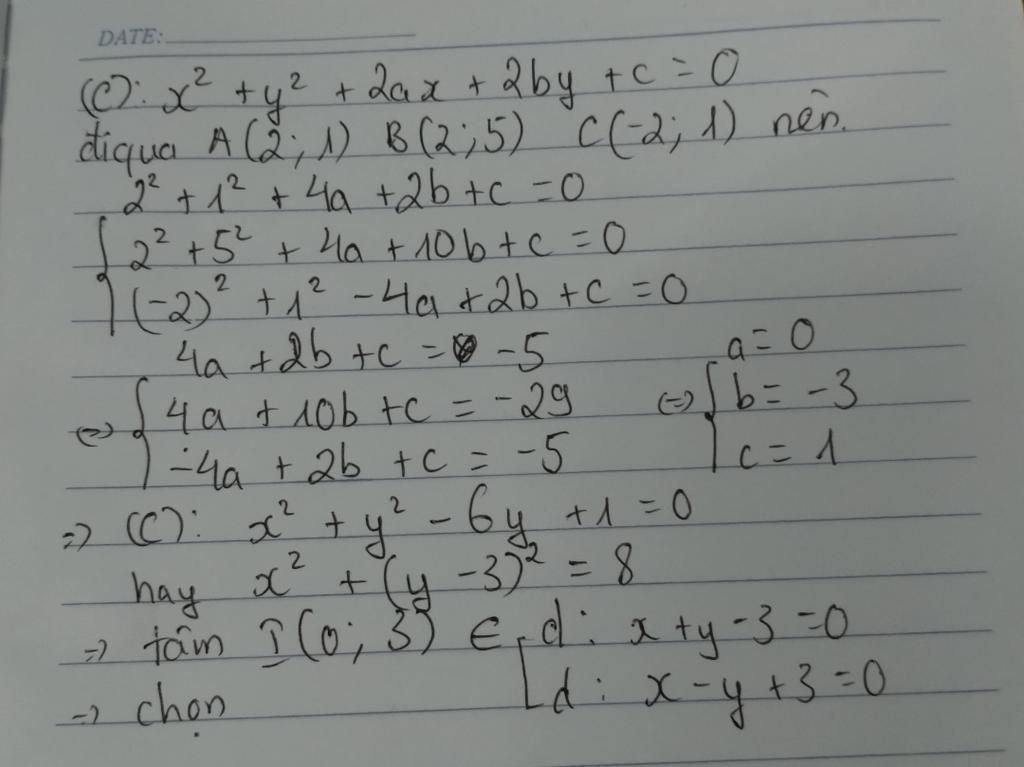 DATE:
(C): x² + y² + 2ax + 2by + c = 0
đi qua A(2; 1) B(2; 5) C(-2; 1) nên.
2² + 1² + 4a + 2b + c = 0
2² + 5² + 4a + 10b + c = 0
(-2)² + 1² - 4a + 2b + c = 0
4a + 2b + c = -5 a = 0
<=> { 4a + 10b + c = -29 <=> { b = -3
-4a + 2b + c = -5 c = 1
=> (C): x² + y² - 6y + 1 = 0
hay x² + (y - 3)² = 8
=> tâm I(0; 3) ∈ [ d: x + y - 3 = 0
=> chọn d: x - y + 3 = 0